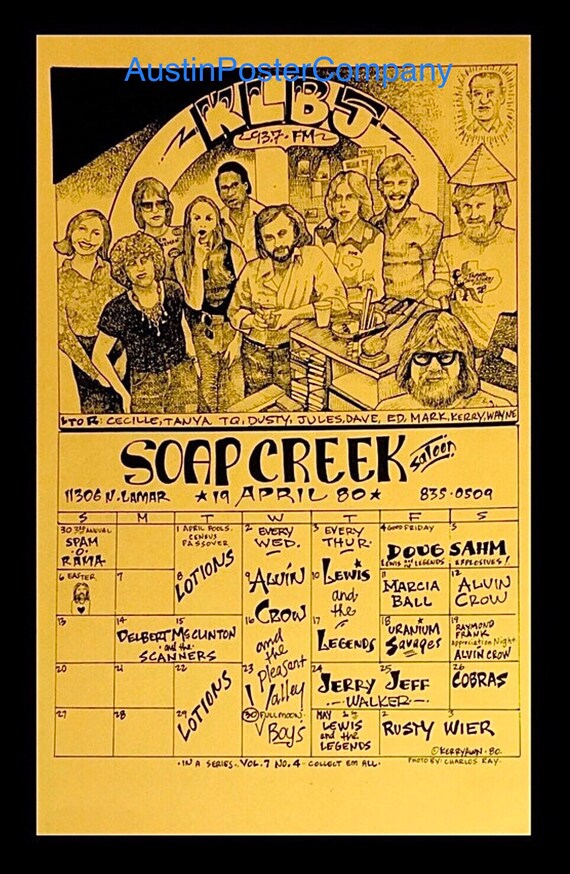 AustinPosterCompany
KLBJ
93.7·FM
L TO R: CECILLE, TANYA, TQ, DUSTY, JULES, DAVE, ED, MARK, KERRY, WAYNE
SOAP CREEK Saloon
11306 N. LAMAR ★ 19 APRIL 80 ★ 835·0509
S M T W T F S
30 3RD ANNUAL
SPAM
·O·
RAMA
1 APRIL FOOLS.
CENSUS
PASSOVER
2 EVERY
WED.
3 EVERY
THUR.
4 GOOD FRIDAY
5
DOUG SAHM
LEWIS AND LEGENDS EXPLOSIVES!
6 EASTER
7
8
LOTIONS
9 ALVIN
CROW
and
the
Pleasant
Valley
Boys
10 LEWIS
and
the
LEGENDS
11
MARCIA
BALL
12
ALVIN
CROW
13
14
15
DELBERT McCLINTON
·and·the·
SCANNERS
16
17
18
URANIUM
Savages
19
RAYMOND
FRANK
appreciation Night
ALVIN CROW
20
21
22
23
24
25
JERRY JEFF
WALKER
26
COBRAS
27
28
29
LOTIONS
30 FULL MOON
MAY 1
LEWIS
and the
LEGENDS
2
3
RUSTY WIER
©KERRY AWN·80
·IN A SERIES· VOL.7 NO.4· COLLECT EM ALL·
PHOTO BY: CHARLES RAY·